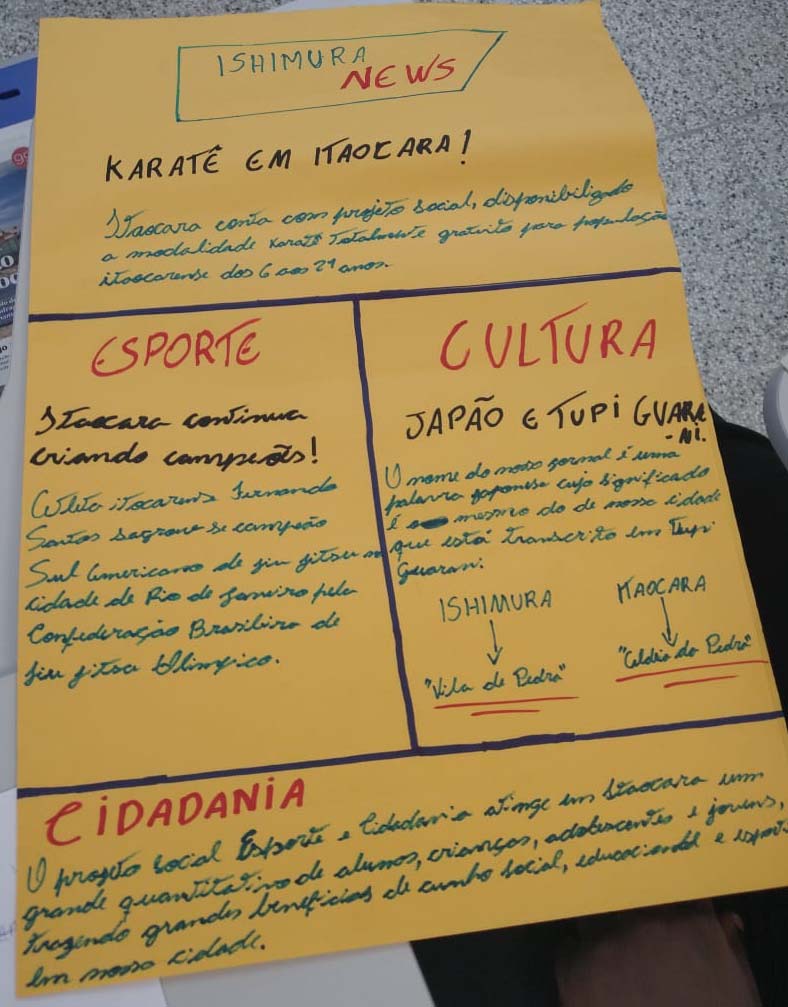 ISHIMURA
NEWS
KARATÊ EM ITAOCARA!
Itaocara conta com projeto social, disponibilizado
a modalidade Karatê Totalmente gratuito para população
itaocarense dos 6 aos 21 anos.
ESPORTE
Itaocara continua
criando campeões!
Atleta itocarens Fernando
Santos sagrou-se campeão
Sul Americano de jiu jitsu na
cidade de Rio de Janeiro pela
Confederação Brasiliera de
jiu jitsu Olímpico.
CULTURA
JAPÃO E TUPi GUARA
-Ni.
O nome do nosso jornal é uma
palavra japonesa cujo significado
é o mesmo do de nossa cidade
que está transcrito em Tupi
Guarani.
ISHIMURA
ITAOCARA
"Vila de Pedra"
"Aldeia da Pedra"
CiDADANiA
O projeto social Esporte e Cidadania atinge em Itaocara um
grande quantitativo de alunos, crianças, adolescentes e jovens,
trazendo grandes benefícios de cunho social, educacional e esport
em nossa cidade.